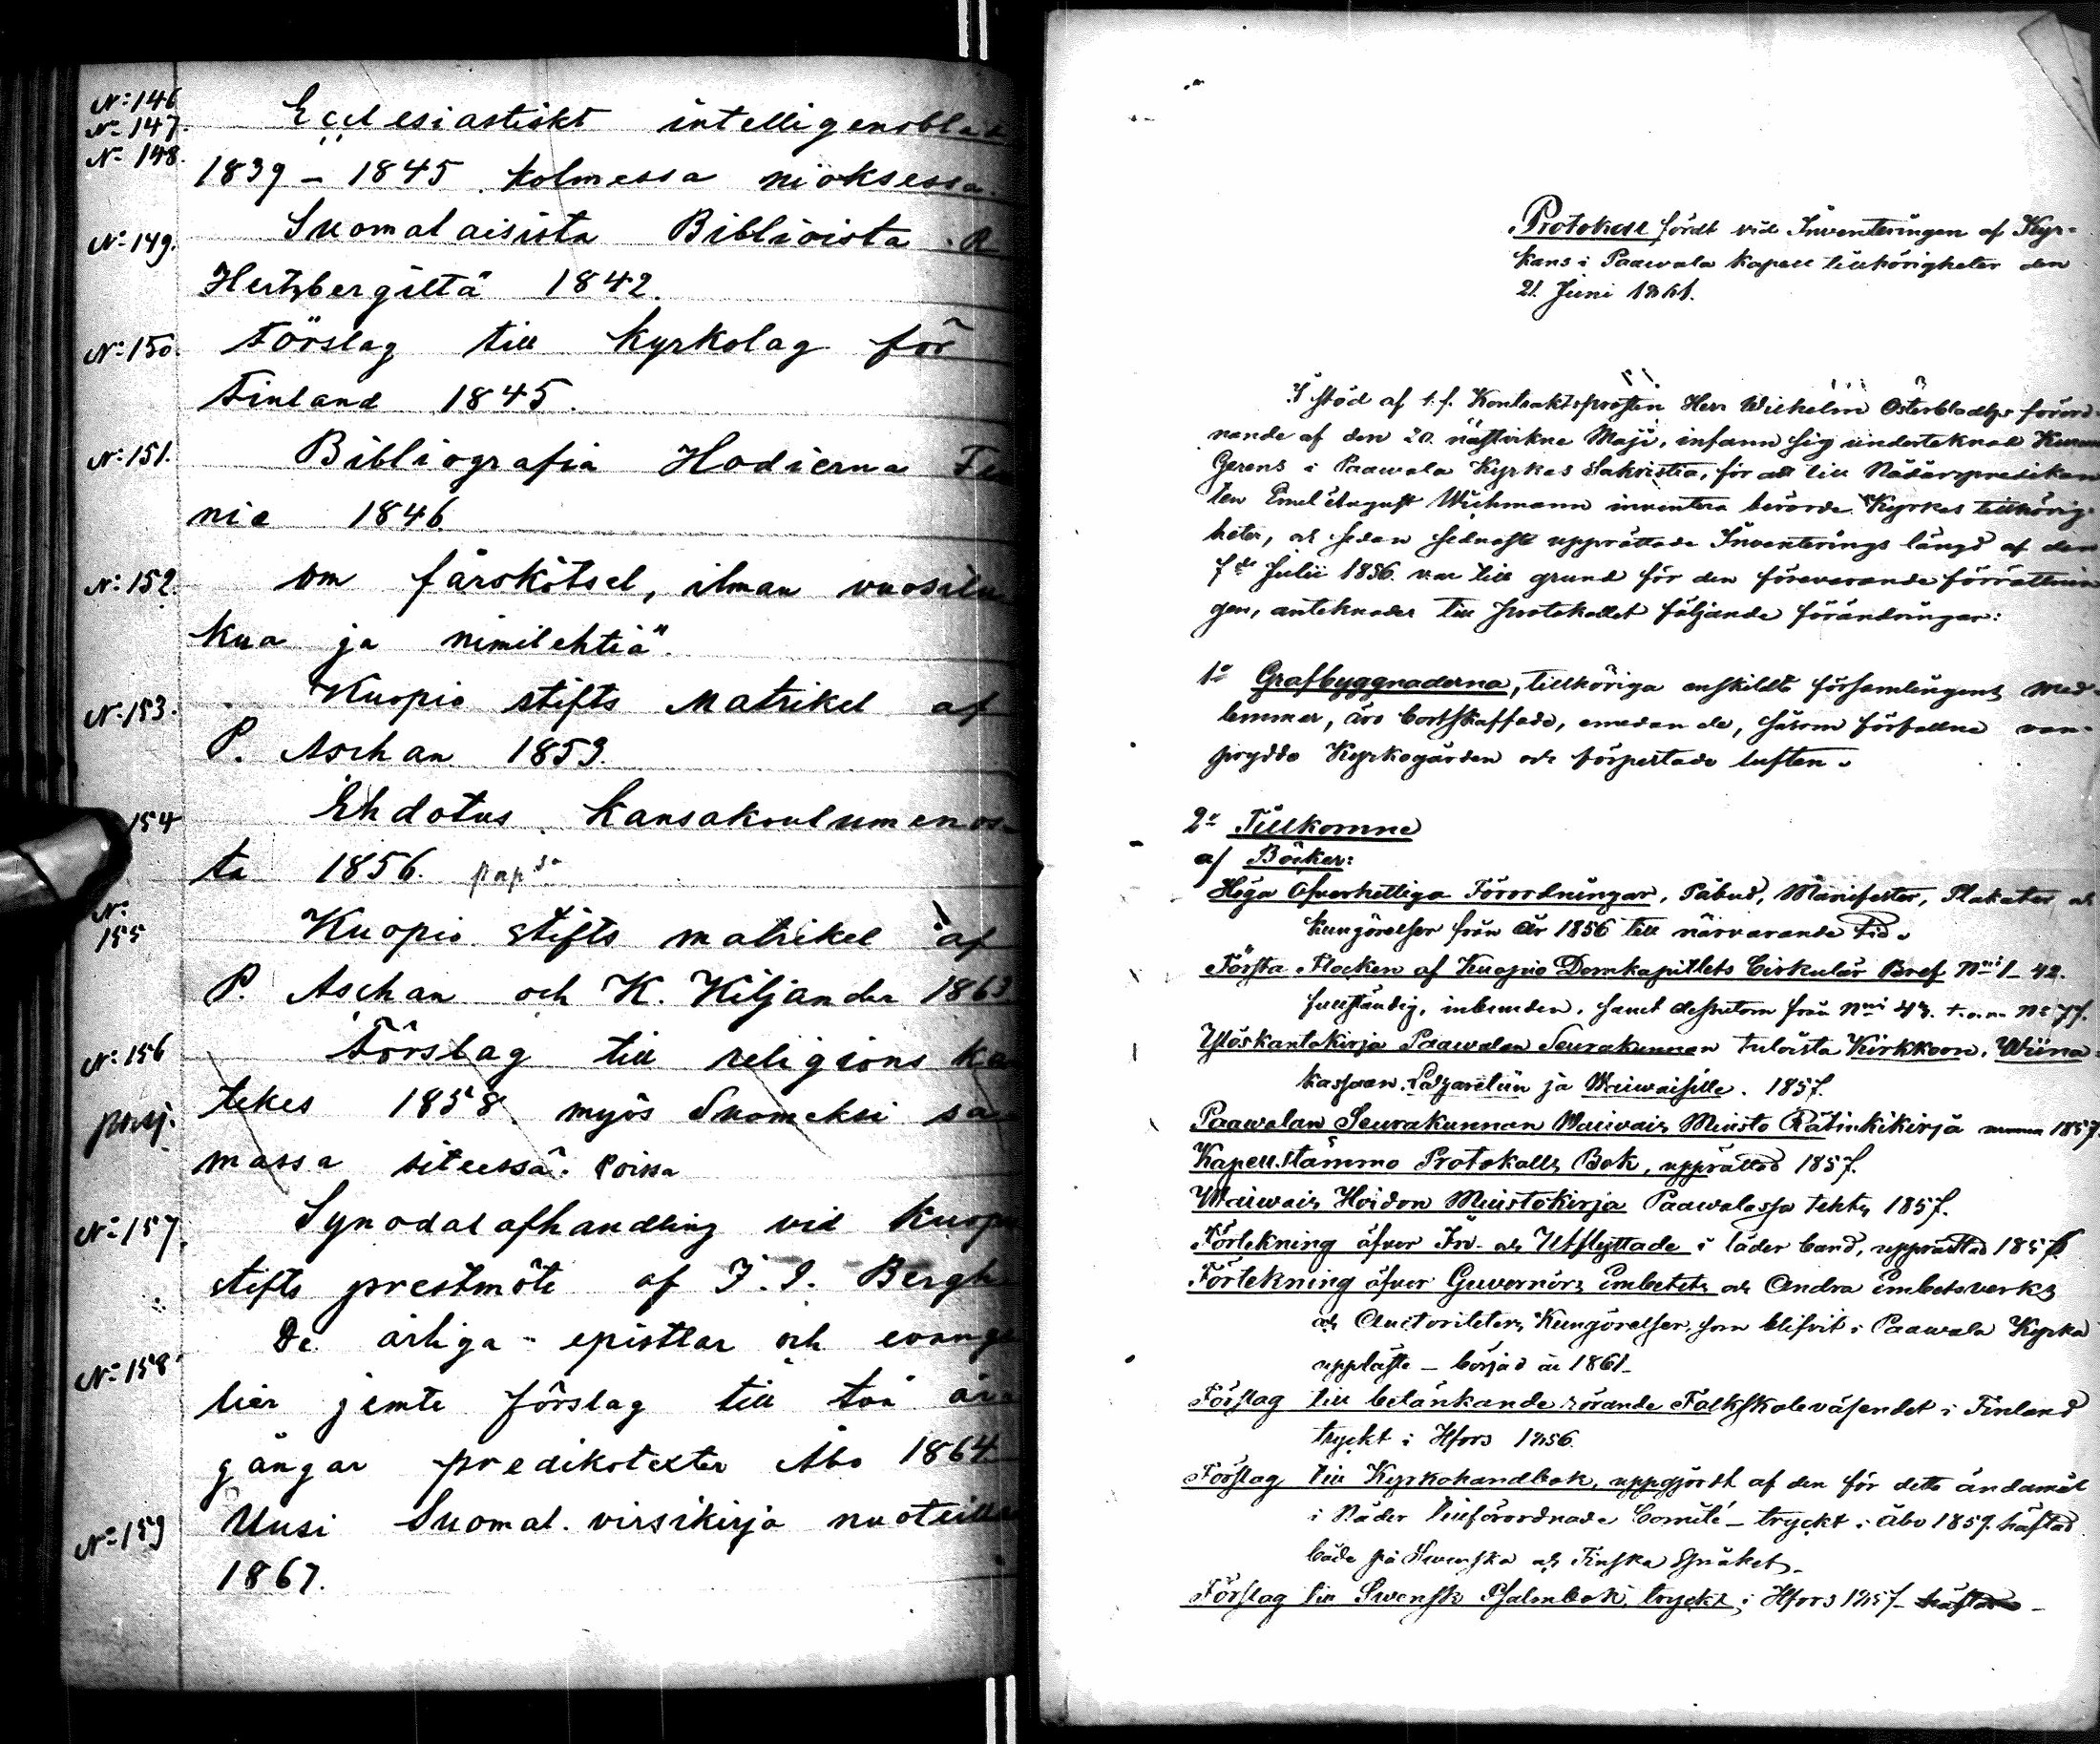 N:o 146
N:o 147.
N:o 148.
Ecclesiastiskt intelligensblad
1839 – 1845 kolmessa nioksessa.
N:o 149. Suomalaisista Biblioista. R
Hertzbergiltä 1842.
N:o 150. Förslag till kyrkolag för
Finland 1845.
N:o 151. Bibliografia Hodierna Fen
nia 1846
N:o 152. om fårskötsel, ilman vuosilu
kua ja nimilehtiä".
N:o 153. Kuopio stifts Matrikel af
P. Aschan 1853.
154 Ehdotus kansakoulumenos-
ta 1856.
N:o 155 Kuopio stifts matrikel af
P. Aschan och K. Kiljander 1863
N:o 156 Förslag till religions ka
tekes 1858. myös Suomeksi sa
massa siteessä. Poissa
N:o 157. Synodalafhandling vid Kuopio
stifts prestmöte af J. I. Bergh
N:o 158 De årliga epistlar och evange
lier jemte förslag till två åra
gångar predikotexter Åbo 1864.
N:o 159 Uusi Suomal. virsikirja nuoteilla
1867.
Protokoll fördt vid Inventeringen af Kyr-
kans i Paavola Kapell tillhörigheter den
21. Juni 1861.
I stöd af t.f. Kontraktsprosten Herr Wilhelm Österbladhs förord-
nande af den 20. nästvikne Maji, infann sig undertecknad
Gerens i Paawola Kyrkas Sakristia, för att till Nådårspredikan
ten Emil August Wichmann inventera berörde Kyrkas tillhörig-
heter, och sedan sednast upprättade Inventerings längd af den
7de Julii 1856. var till grund för den förevarande förrättnin
gen, antecknades till protokollet följande förändringar:
1o Grafbyggnaderna, tillhöriga enskildte församlingens med-
lemmar, äro bortskaffade, emedan de, såsom förfallne van-
prydde Kyrkogården och förpestade luften.
2o Tillkomne
af Böcker:
Höga Öfverhetliga Förordningar, Påbud, Manifester, Plakater och
kungörelser från år 1856 till närvarande tid.
Första Flocken af Kuopio Domkapitlets Cirkulär Bref N:ri 1–42.
fullständig, inbunden, samt dessutom från N:ri 43. t.o.m. N:o 77.
Ylöskantokirja Paawolan Seurakunnan tuloista Kirkkoon, Wiina-
kassaan, Lazarettiin ja Waiwaisille. 1857.
Paawolan Seurakunnan Waiwais Muisto Rätinkikirja 1857
Kapell.stämmo Protokolls Bok, upprättad 1857.
Waiwais Hoidon Muistokirja Paawolassa tehty 1857.
Förtekning öfver In- och Utflyttade i läder band, upprättad 1857
Förtekning öfver Guvernörs Embetets och Andra embetsverks
och Auctoriteters Kungörelser, som blifvit i Paawola Kyrka
uppläste – börjad år 1861–
Förslag till betänkande rörande Folkskoleväsendet i Finland
tryckt i Hfors 1856.
Förslag till Kyrkohandbok, uppgjordt af den för detta ändamål
i Nåder tillförordnade Comité – tryckt i Åbo 1859. häftad
både på Swenska och Finska Språket.
Förslag till Swensk Psalmbok, tryckt i Hfors 1857 häftad –